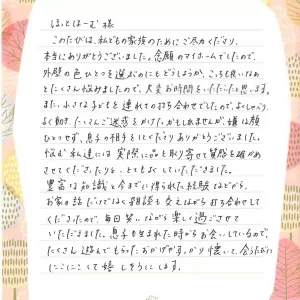 ほっとほーむ 様
このたびは、私どもの家族のためにご尽力くださり、
本当にありがとうございました。念願のマイホームでしたので、
外壁の色ひとつを選ぶのにもどうしようか、こっちも良いなぁ
とたくさん悩めましたので、大変お時間をいただいたと思います。
また、小さな子どもを連れての打ち合わせでしたので、よくしゃべり、
よく動き、たくさんご迷惑をかけたかもしれませんが、嫌な顔
ひとつせず、息子の相手をしてくださりありがとうございました。
悩む私達には実際に品を取り寄せて質感を確かめ
させてくださったりと、とてもよくしていただきました。
豊富な知識と今までに得られた経験などから、
お家の話だけでなく雑談も交えながら打ち合わせして
くださったので、毎日笑いながら楽しく過ごさせて
いただきました。息子が生まれた時からお会いしているので、
たくさん遊んでもらったおかげですっかり懐いて、会うたびに
にこにこして嬉しそうにします。